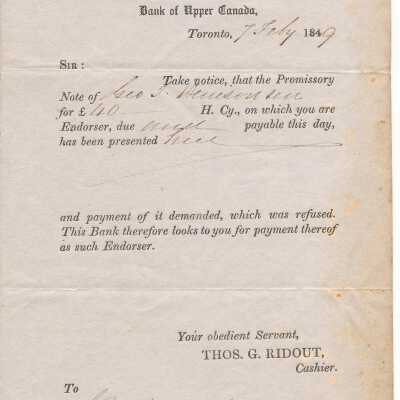 Bank of Upper Canada,
Toronto, 7 Feby 1849
SIR:
Take notice, that the Promissory
Note of Geo T. Denison
for £ 40 H. Cy., on which you are
Endorser, due and payable this day,
has been presented
and payment of it demanded, which was refused.
This Bank therefore looks to you for payment thereof
as such Endorser.
Your obedient Servant,
THOS. G. RIDOUT,
Cashier.
To